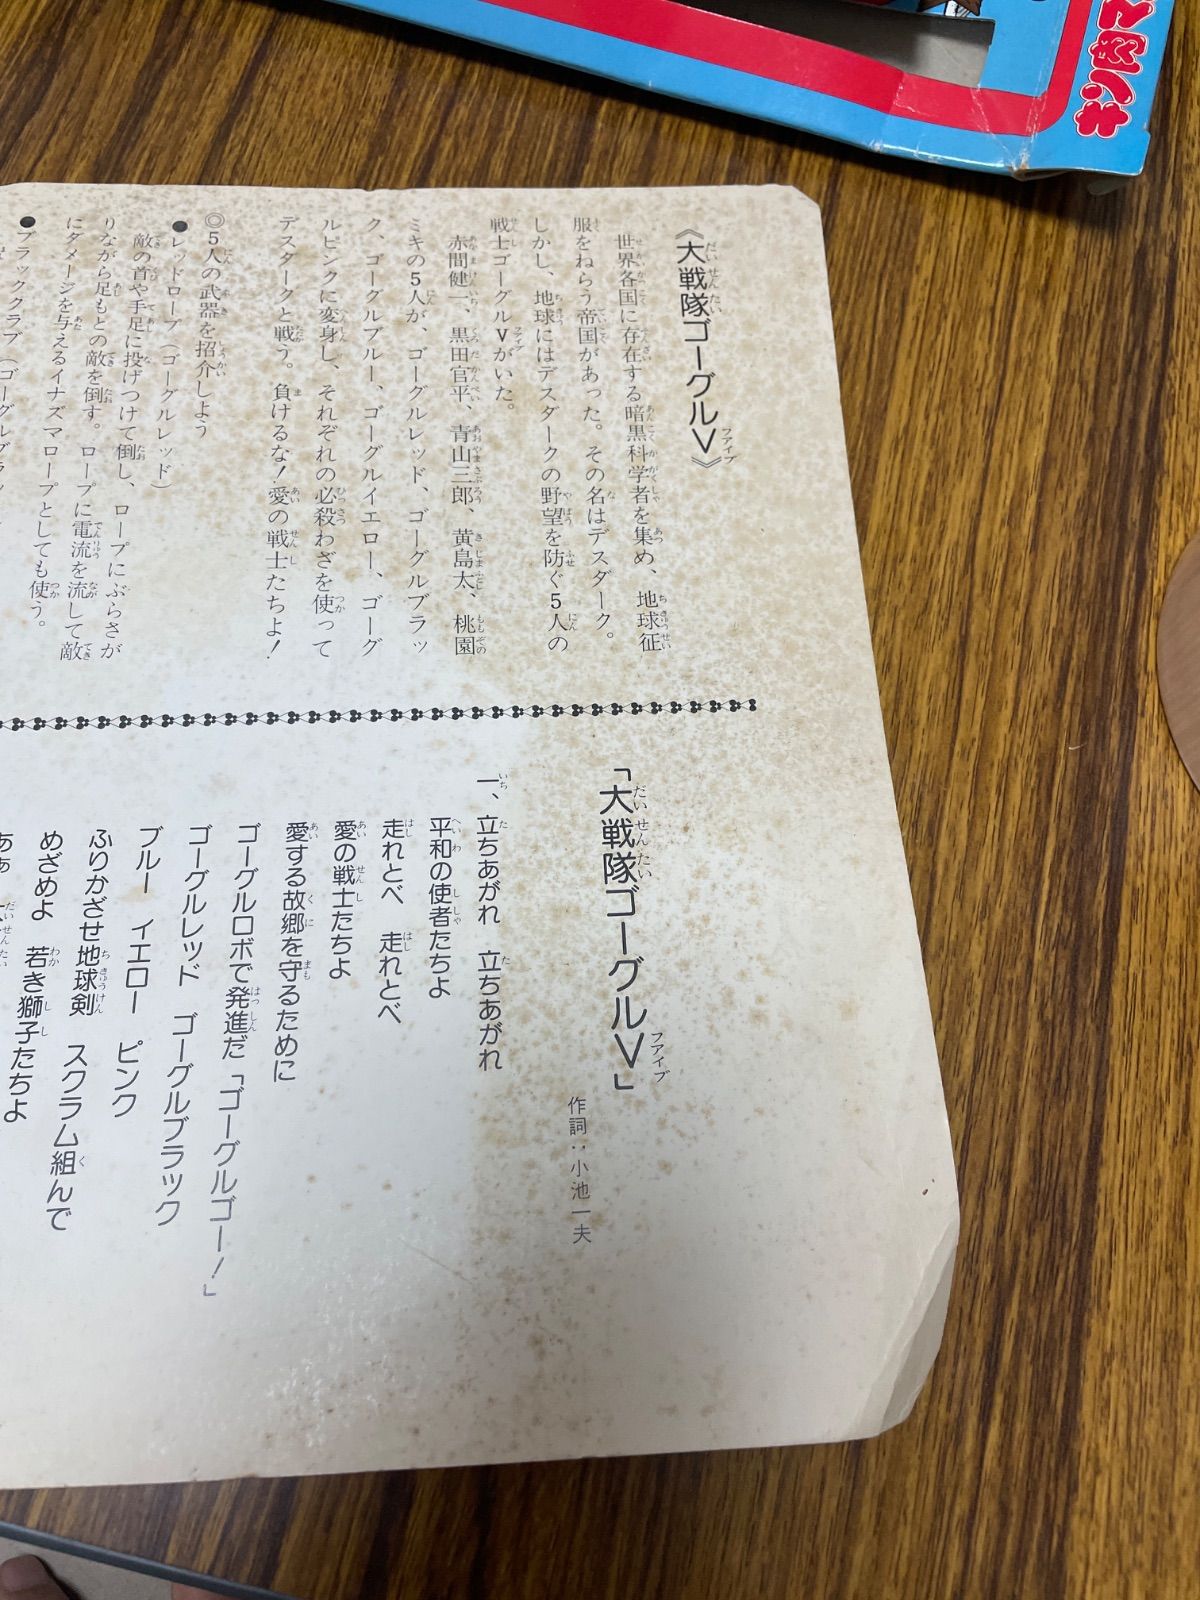 《大戦隊ゴーグルV》
世界各国に存在する暗黒科学者を集め、地球征
服をねらう帝国があった。その名はデスダーク。
しかし、地球にはデスダークの野望を防ぐ5人の
戦士ゴーグルVがいた。
赤間健一、黒田官平、青山三郎、黄島太、桃園
ミキの5人が、ゴーグルレッド、ゴーグルブラッ
ク、ゴーグルブルー、ゴーグルイエロー、ゴーグ
ルピンクに変身し、それぞれの必殺わざを使って
デスダークと戦う。負けるな!愛の戦士たちよ!
◎5人の武器を紹介しよう
●レッドロープ(ゴーグルレッド)
敵の首や手足に投げつけて倒し、ロープにぶらさが
りながら足もとの敵を倒す。ロープに電流を流して敵
にダメージを与えるイナズマロープとしても使う。
●ブラッククラブ(ゴーグルブラッ
「大戦隊ゴーグルV」
作詞:小池一夫
一、立ちあがれ 立ちあがれ
平和の使者たちよ
走れとべ 走れとべ
愛の戦士たちよ
愛する故郷を守るために
ゴーグルロボで発進だ「ゴーグルゴー!」
ゴーグルレッド ゴーグルブラック
ブルー イエロー ピンク
ふりかざせ地球剣 スクラム組んで
めざめよ 若き獅子たちよ